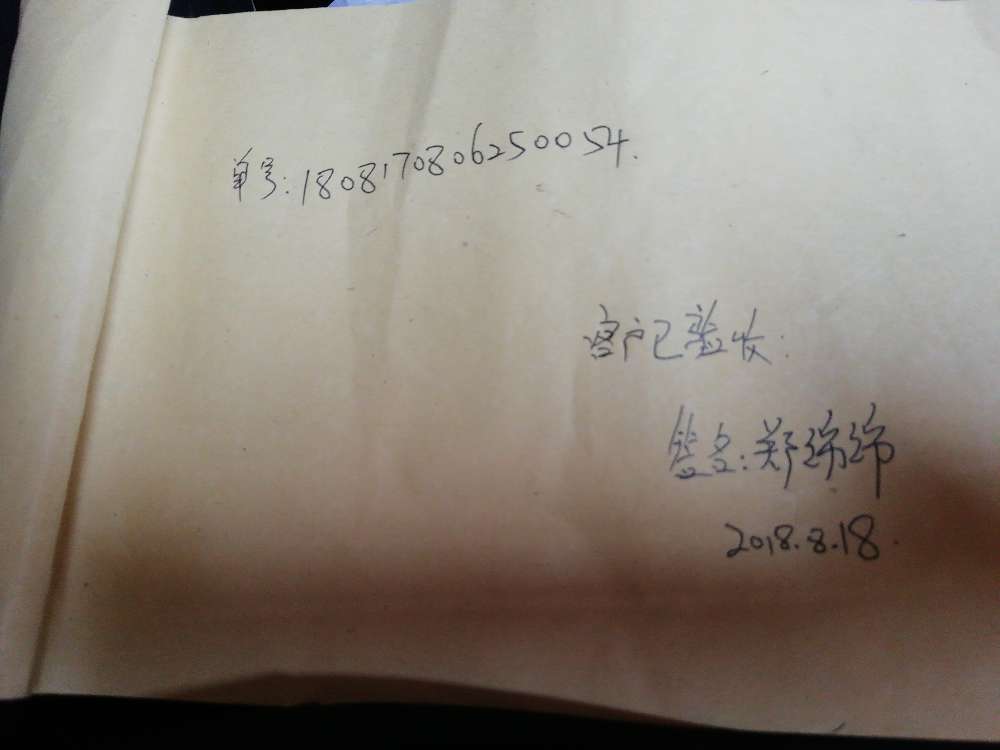 单号:1808170806250054.
客户已验收.
签名:郑绵绵
2018.8.18.